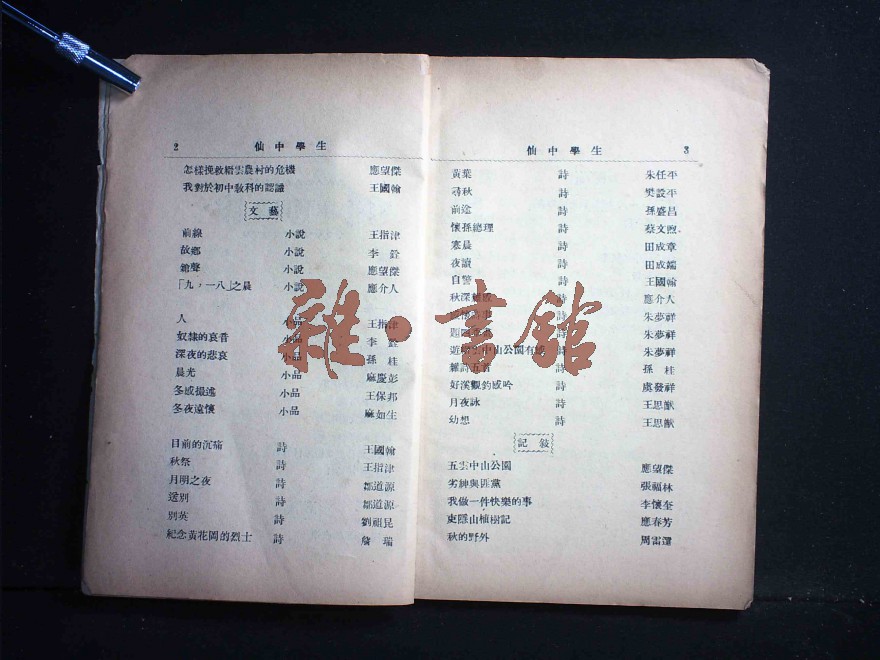 2 仙中學生
怎樣挽救縉雲農村的危機 應望傑
我對於初中敎科的認識 王國翰
文藝
前線 小說 王指津
故鄉 小說 李銓
鎗聲 小說 應望傑
「九，一八」之晨 小說 應介人
人 小品 王指津
奴隸的哀音 小品 李銓
深夜的悲哀 小品 孫桂
晨光 小品 麻慶彭
冬感描述 小品 王保邦
冬夜遠懷 小品 麻如生
目前的沉痛 詩 王國翰
秋祭 詩 王指津
月明之夜 詩 鄒道源
送別 詩 鄒道源
別英 詩 劉祖昆
紀念黃花岡的烈士 詩 詹瑞
仙中學生 3
黃葉 詩 朱任平
尋秋 詩 樊設平
前途 詩 孫盛昌
懷孫總理 詩 蔡文煦
寒晨 詩 田成章
夜讀 詩 田成鐳
自警 詩 王國翰
秋深 詩 應介人
詩 朱夢祥
詩 朱夢祥
遊 中山公園有感 詩 朱夢祥
雜詩五首 詩 孫桂
好漢觀釣感吟 詩 虞發祥
月夜詠 詩 王思猷
幼想 詩 王思猷
記敍
五雲中山公園 應望傑
劣紳與匪黨 張福林
我做一件快樂的事 李懷奎
東隱山植樹記 應春芳
秋的野外 周雷還
雜·書館